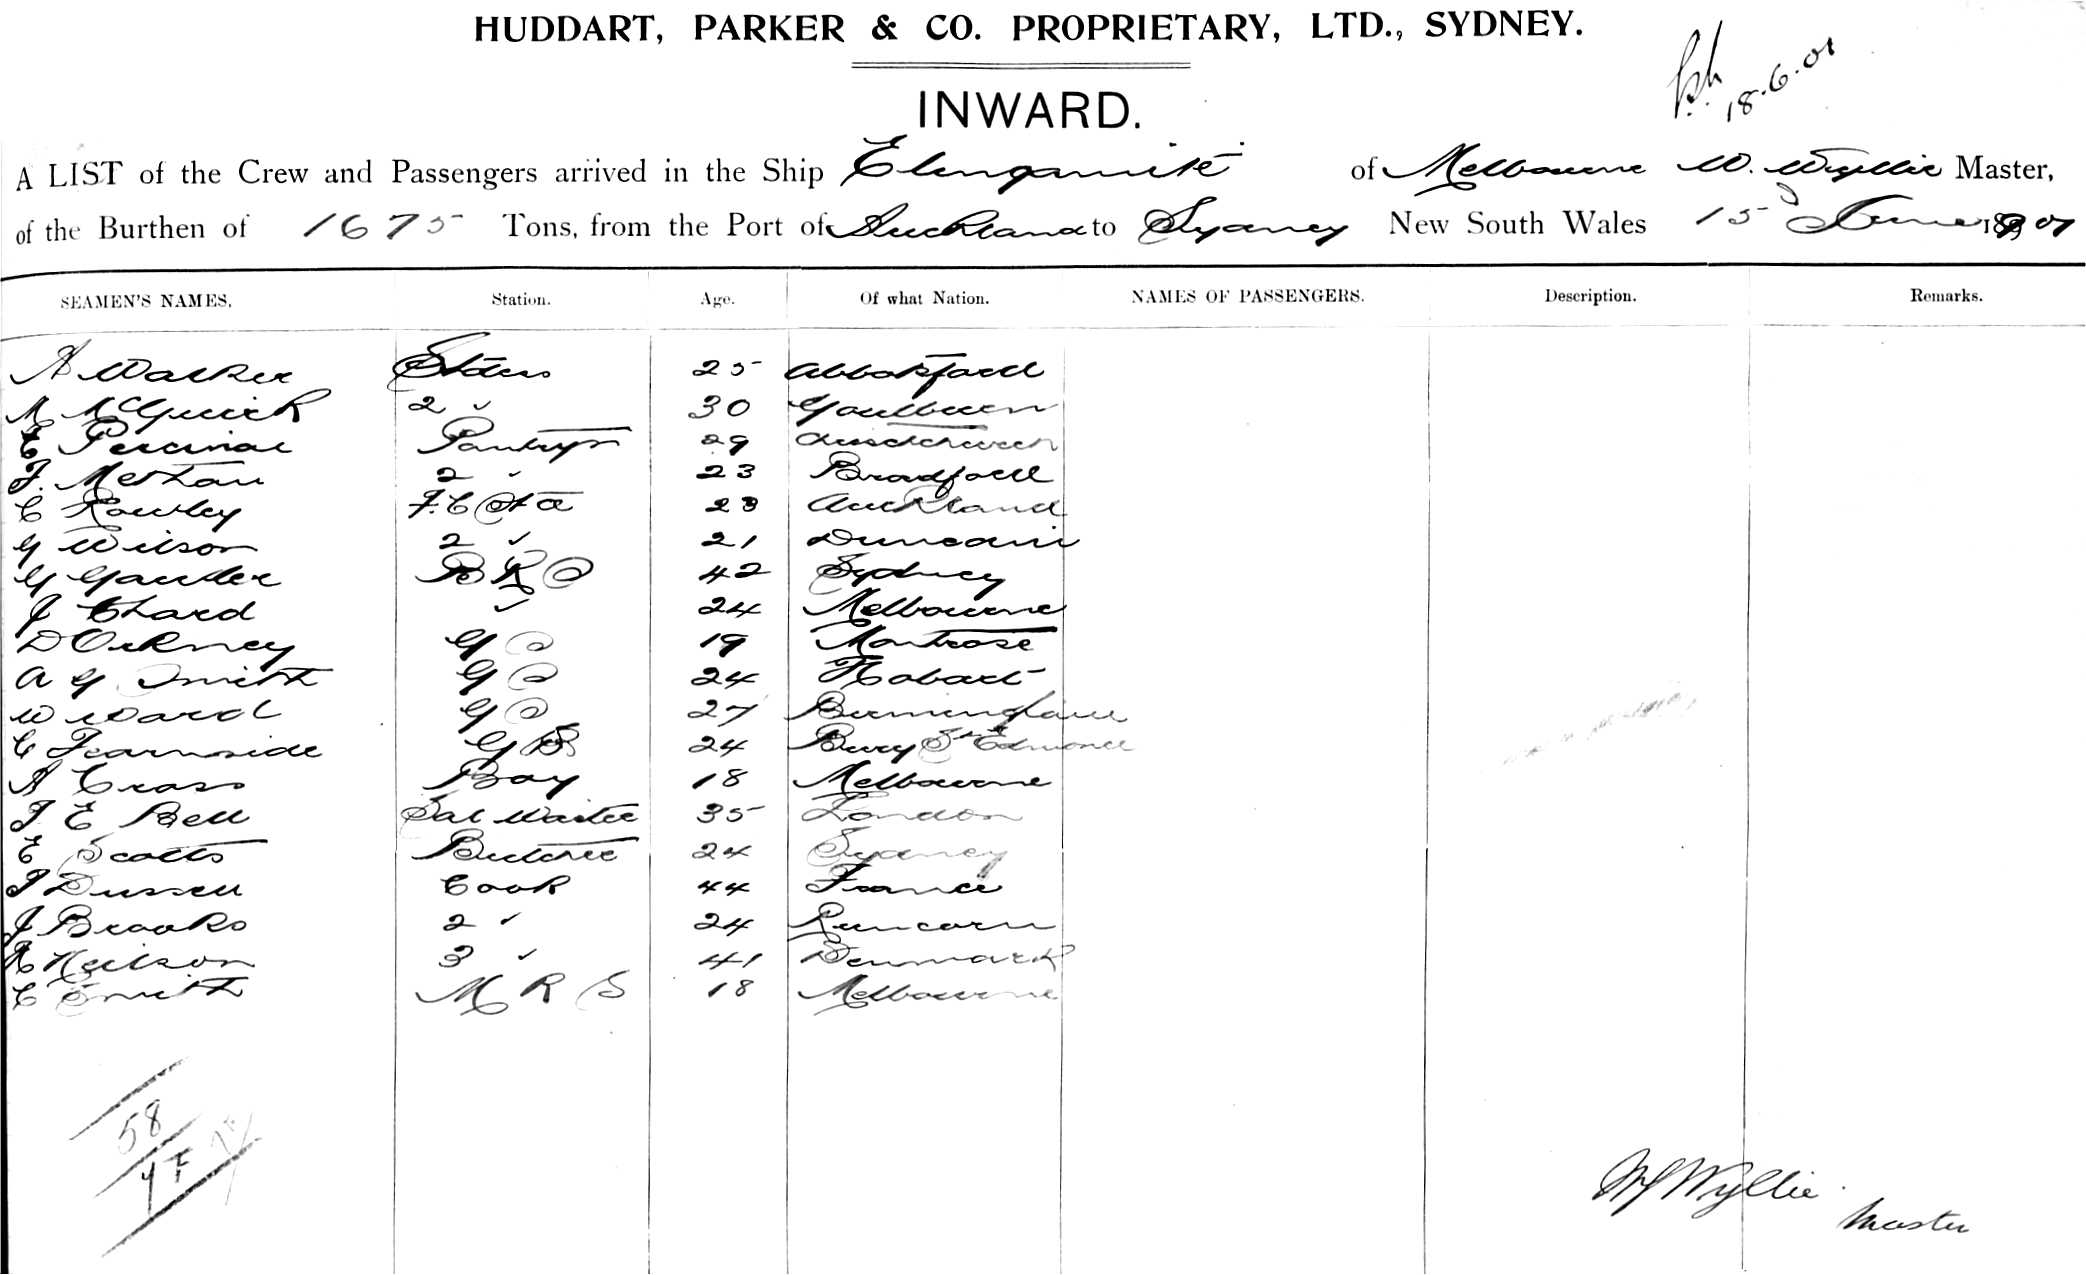 HUDDART, PARKER & CO. PROPRIETARY, LTD., SYDNEY.
18.6.01
INWARD.
A LIST of the Crew and Passengers arrived in the Ship Elingamite of Melbourne W. Wyllie Master,
of the Burthen of 1675 Tons, from the Port of Auckland to Sydney New South Wales 15 June 1901
SEAMEN'S NAMES, Station. Age. Of what Nation. NAMES OF PASSENGERS. Description. Remarks.
A Walker 25 Abbotsford
M McGuirk 2 " 30 Goulburn
E Percival 29
F. 2 " 23 Bradford
C Rowley F.C 23 Auckland
G Wilson 2 " 21
G B R 42 Sydney
J Chard " 24 Melbourne
D Orkney G 19 Montrose
A G Smith G 24 Hobart
W Ward G 27 Birmingham
C Fearnside G 24 Bury St Edmond
A Cross Boy 18 Melbourne
F E Bell Sal Waiter 35 London
E Scotts Butcher 24 Sydney
Cook 44 France
J Brooks 2 " 24 Runcorn
Neilson 3 " 41 Denmark
C Smith M R S 18 Melbourne
58
4F
W Wyllie
Master